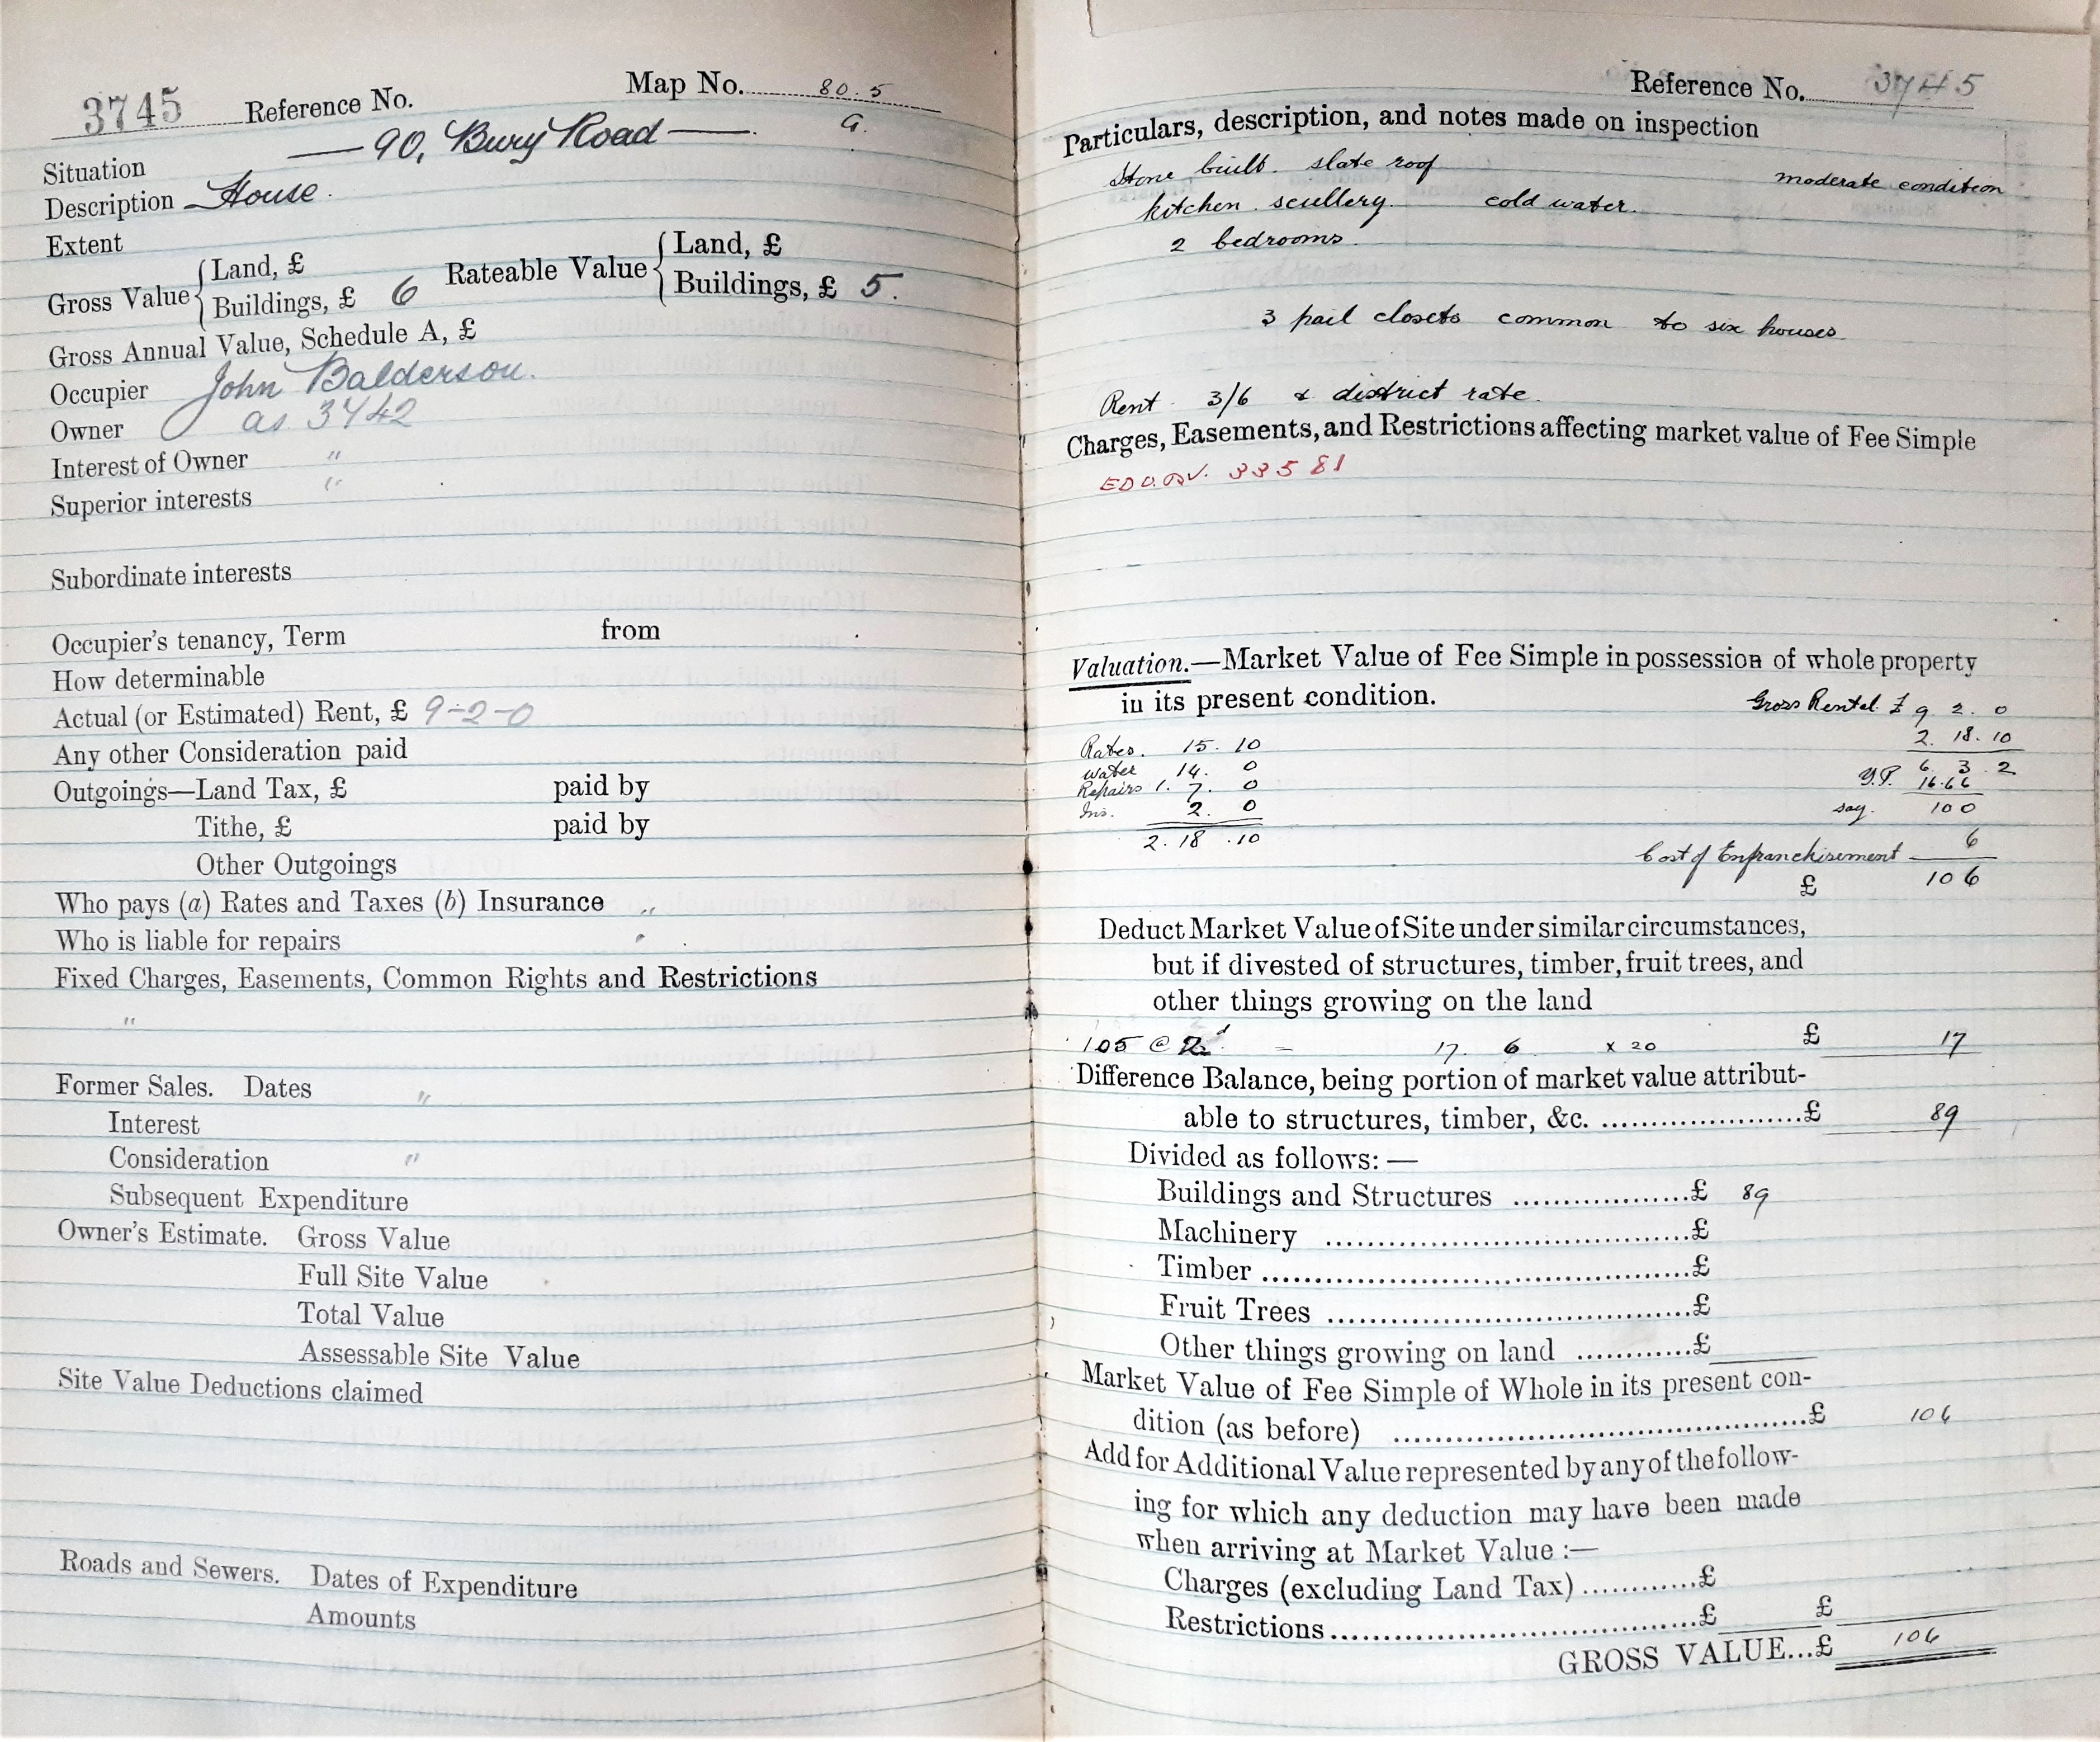 3745 Reference No. Map No. 80.5
G.
Situation — 90, Bury Road —
Description House.
Extent
Gross Value { Land, £ Rateable Value { Land, £
Buildings, £ 6 Buildings, £ 5.
Gross Annual Value, Schedule A, £
Occupier John Balderson.
Owner as 3742
Interest of Owner "
Superior interests "
Subordinate interests
Occupier's tenancy, Term from
How determinable
Actual (or Estimated) Rent, £ 9-2-0
Any other Consideration paid
Outgoings—Land Tax, £ paid by
Tithe, £ paid by
Other Outgoings
Who pays (a) Rates and Taxes (b) Insurance "
Who is liable for repairs "
Fixed Charges, Easements, Common Rights and Restrictions
"
Former Sales. Dates "
Interest
Consideration "
Subsequent Expenditure
Owner's Estimate. Gross Value
Full Site Value
Total Value
Assessable Site Value
Site Value Deductions claimed
Roads and Sewers. Dates of Expenditure
Amounts
Reference No. 3745
Particulars, description, and notes made on inspection
Stone built. slate roof moderate condition
kitchen. scullery. cold water.
2 bedrooms.
3 pail closets common to six houses.
Rent 3/6 & district rate.
Charges, Easements, and Restrictions affecting market value of Fee Simple
33581
Valuation.—Market Value of Fee Simple in possession of whole property
in its present condition. Gross Rental £ 9. 2. 0
2. 18. 10
Rates. 15. 10
water 14. 0 6. 3. 2
Repairs 1. 7. 0 Y.P. 16.66
Ins. 2. 0 say. 100
2. 18. 10 6
Cost of Enfranchisement
£ 106
Deduct Market Value of Site under similar circumstances,
but if divested of structures, timber, fruit trees, and
other things growing on the land
105 @ 2d – 17. 6 x 20 £ 17
Difference Balance, being portion of market value attribut-
able to structures, timber, &c. ....................£ 89
Divided as follows: —
Buildings and Structures ..................£ 89
Machinery ....................................£
Timber ..........................................£
Fruit Trees ....................................£
Other things growing on land ............£
Market Value of Fee Simple of Whole in its present con-
dition (as before) ..........................................£ 106
Add for Additional Value represented by any of the follow-
ing for which any deduction may have been made
when arriving at Market Value :—
Charges (excluding Land Tax) ............£
Restrictions ....................................£ £
GROSS VALUE...£ 106